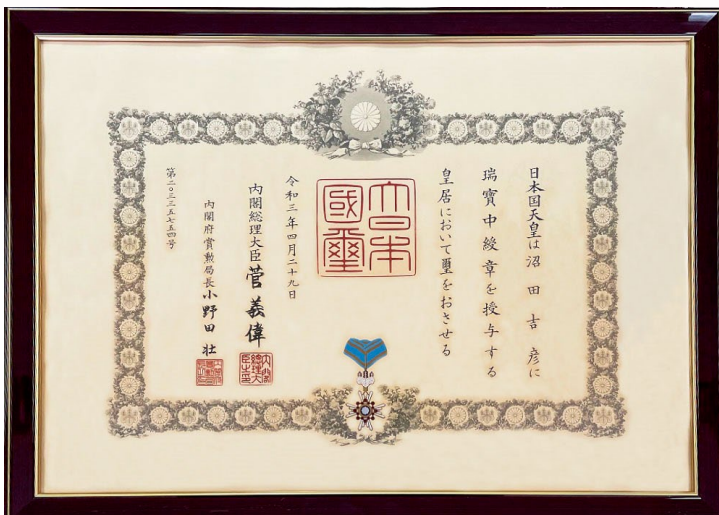 日本国天皇は沼田吉彦に
瑞寶中綬章を授与する
皇居において璽をおさせる
大日本國璽
令和三年四月二十九日
内閣総理大臣 菅義偉
内閣総理大臣之印
内閣府賞勲局長 小野田壮
第二〇三三五七五四号